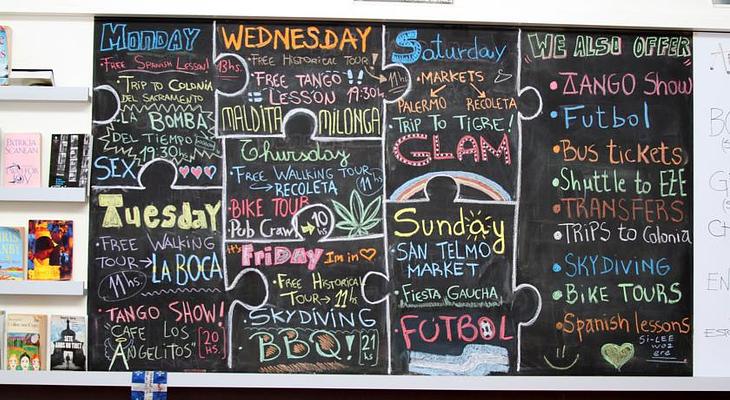 Monday
• Free Spanish Lesson!
• Trip to Colonia
del Sacramento
La Bomba
del Tiempo
19:30hs
SEX
Tuesday
• Free Walking
Tour → La Boca
11hs
• Tango Show!
"Cafe Los
Angelitos"
20
hs.
Wednesday
• Free Historical Tour!
11hs
• Free Tango!!
Lesson 19:30h
Maldita Milonga
Thursday
• Free Walking Tour
→ Recoleta
11hs
• Bike Tour
• Pub Crawl →
10
hs
Friday I'm in
• Free Historical
Tour → 11hs
• Skydiving
• BBQ!
21
hs
Saturday
• Markets
Palermo Recoleta
• Trip to Tigre!
GLAM
Sunday
• San Telmo
Market
• Fiesta Gaucha
• Futbol
"We also offer"
• Tango Show
• Futbol
• Bus tickets
• Shuttle to EZE
• Transfers
• Trips to Colonia
• Skydiving
• Bike Tours
• Spanish lessons
Si-Lee
woz
ere
Patricia
Scanlan